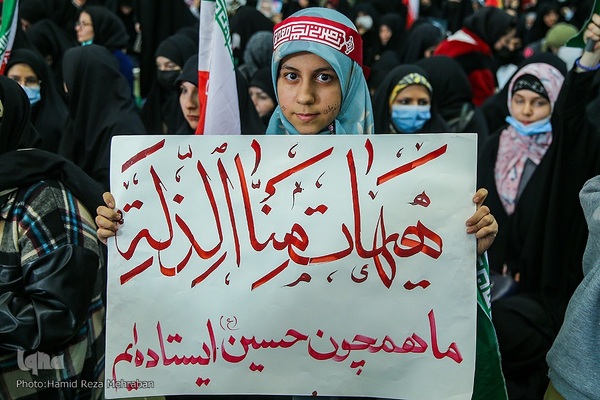 هیهات منا الذلة
ما همچون حسین (ع) ایستاده‌ایم
iqna
Photo: Hamid Reza Momtahan